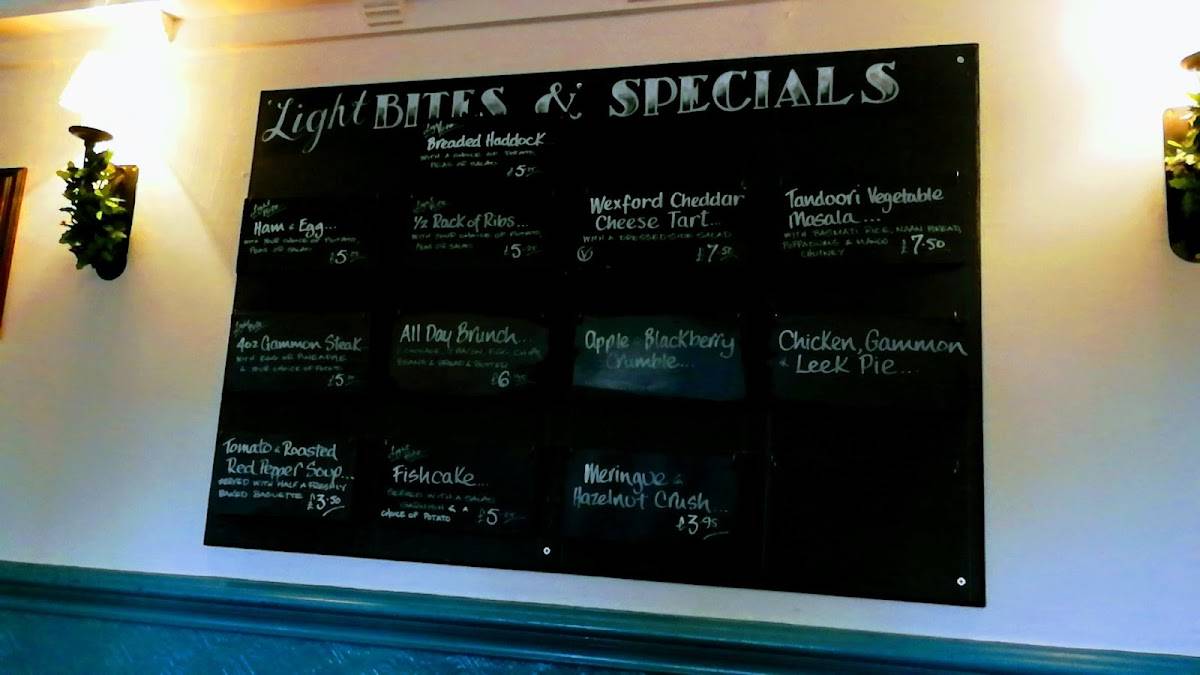 Light BITES & SPECIALS
Breaded Haddock
WITH A CHOICE OF POTATO,
PEAS OR SALAD
£5
Ham & Egg...
WITH YOUR CHOICE OF POTATO,
PEAS OR SALAD
£5
½ Rack of Ribs...
WITH YOUR CHOICE OF POTATO,
PEAS OR SALAD
£5
Wexford Cheddar
Cheese Tart...
WITH A DRESSED SIDE SALAD
V £7.50
Tandoori Vegetable
Masala...
WITH BASMATI RICE, NAAN BREAD,
POPPADOMS & MANGO
CHUTNEY £7.50
4oz Gammon Steak
WITH EGG OR PINEAPPLE
& YOUR CHOICE OF POTATO
£5
All Day Brunch...
BACON, EGG, CHIPS,
BEANS & BREAD & BUTTER
£6
Apple & Blackberry
Crumble...
Chicken, Gammon
& Leek Pie...
Tomato & Roasted
Red Pepper Soup...
SERVED WITH HALF A FRESHLY
BAKED BAGUETTE £3.50
Fishcake...
SERVED WITH A SALAD
GARNISH & A
CHOICE OF POTATO £5
Meringue &
Hazelnut Crush...
£3.95